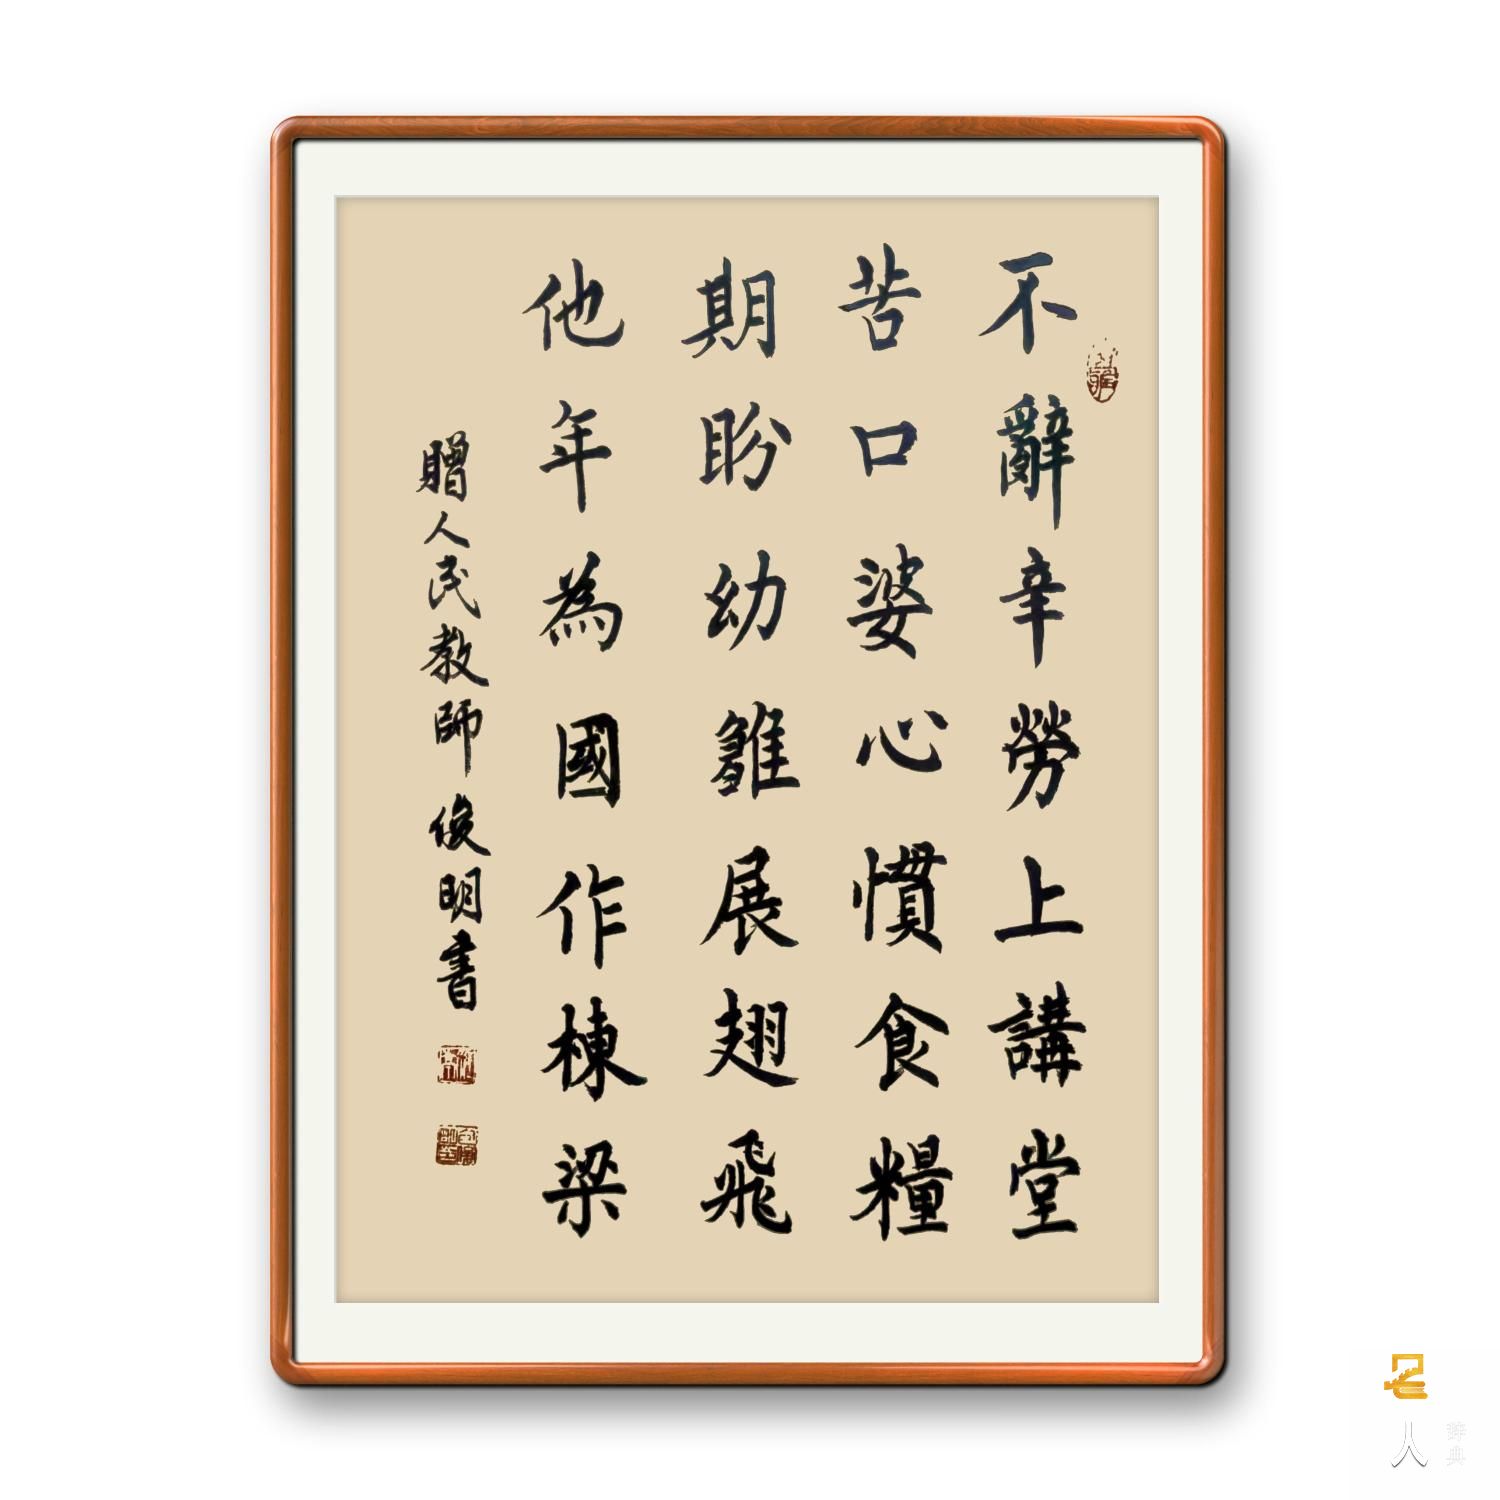 不辭辛勞上講堂
苦口婆心慣食糧
期盼幼雛展翅飛
他年為國作棟梁
贈人民教師 俊明書
名
人
辞典